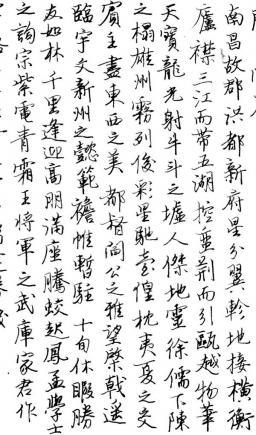 南昌故郡洪都新府星分翼軫地接橫衡
廬襟三江而帶五湖控蠻荊而引甌越物華
天寶龍光射牛斗之墟人傑地靈徐儒下陳
之榻雄州霧列俊彩星馳臺隍枕夷夏之交
賓主盡東西之美都督閻公之雅望棨戟遙
臨宇文新州之懿範襜帷暫駐十旬休暇勝
友如林千里逢迎高朋滿座騰蛟起鳳孟學士
之詞宗紫電青霜王將軍之武庫家君作